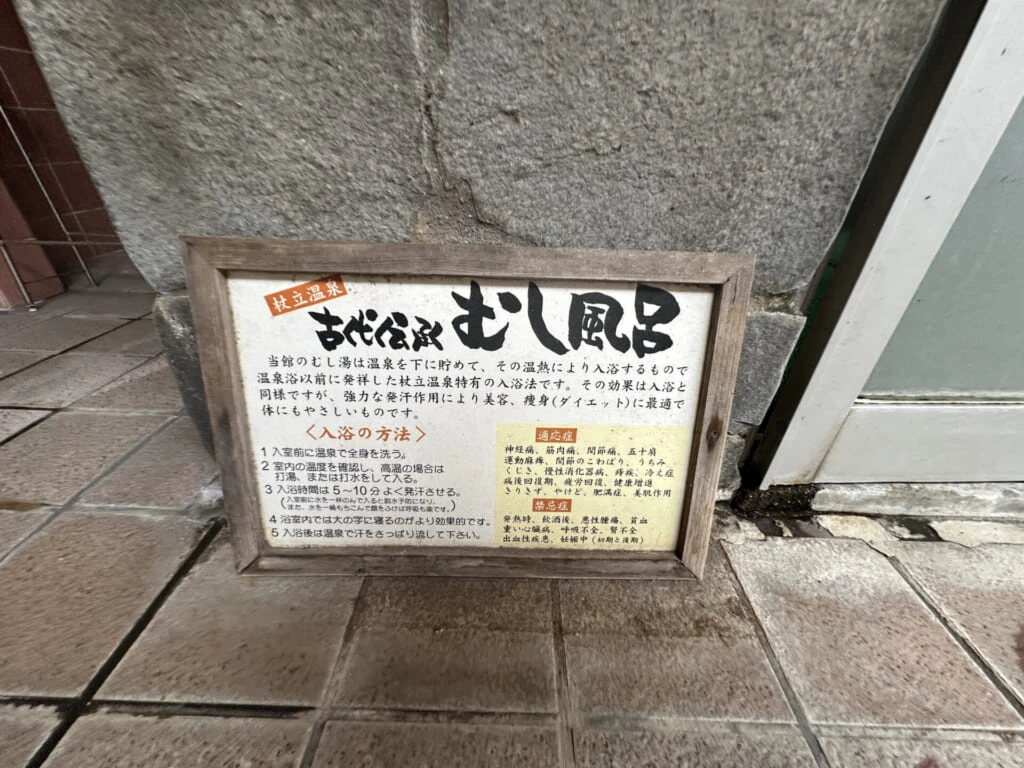 杖立温泉
古代伝承 むし風呂
当館のむし湯は温泉を下に貯めて、その温熱により入浴するもので
温泉浴以前に発祥した杖立温泉特有の入浴法です。その効果は入浴と
同様ですが、強力な発汗作用により美容、痩身(ダイエット)に最適で
体にもやさしいものです。
〈入浴の方法〉
1 入室前に温泉で全身を洗う。
2 室内の温度を確認し、高温の場合は
打湯、または打水をして入る。
3 入浴時間は5~10分よく発汗させる。
(入室前に水を一杯のんで入ると脱水予防になり、
また、水を一桶もちこんで顔をふけば呼吸も楽です。)
4 浴室内では大の字に寝るのがより効果的です。
5 入浴後は温泉で汗をさっぱり流して下さい。
適応症
神経痛、筋肉痛、関節痛、五十肩
運動麻痺、関節のこわばり、うちみ
くじき、慢性消化器病、痔疾、冷え症
病後回復期、疲労回復、健康増進
きりきず、やけど、肥満症、美肌作用
禁忌症
発熱時、飲酒後、悪性腫瘍、貧血
重い心臓病、呼吸不全、腎不全
出血性疾患、妊娠中(初期と後期)